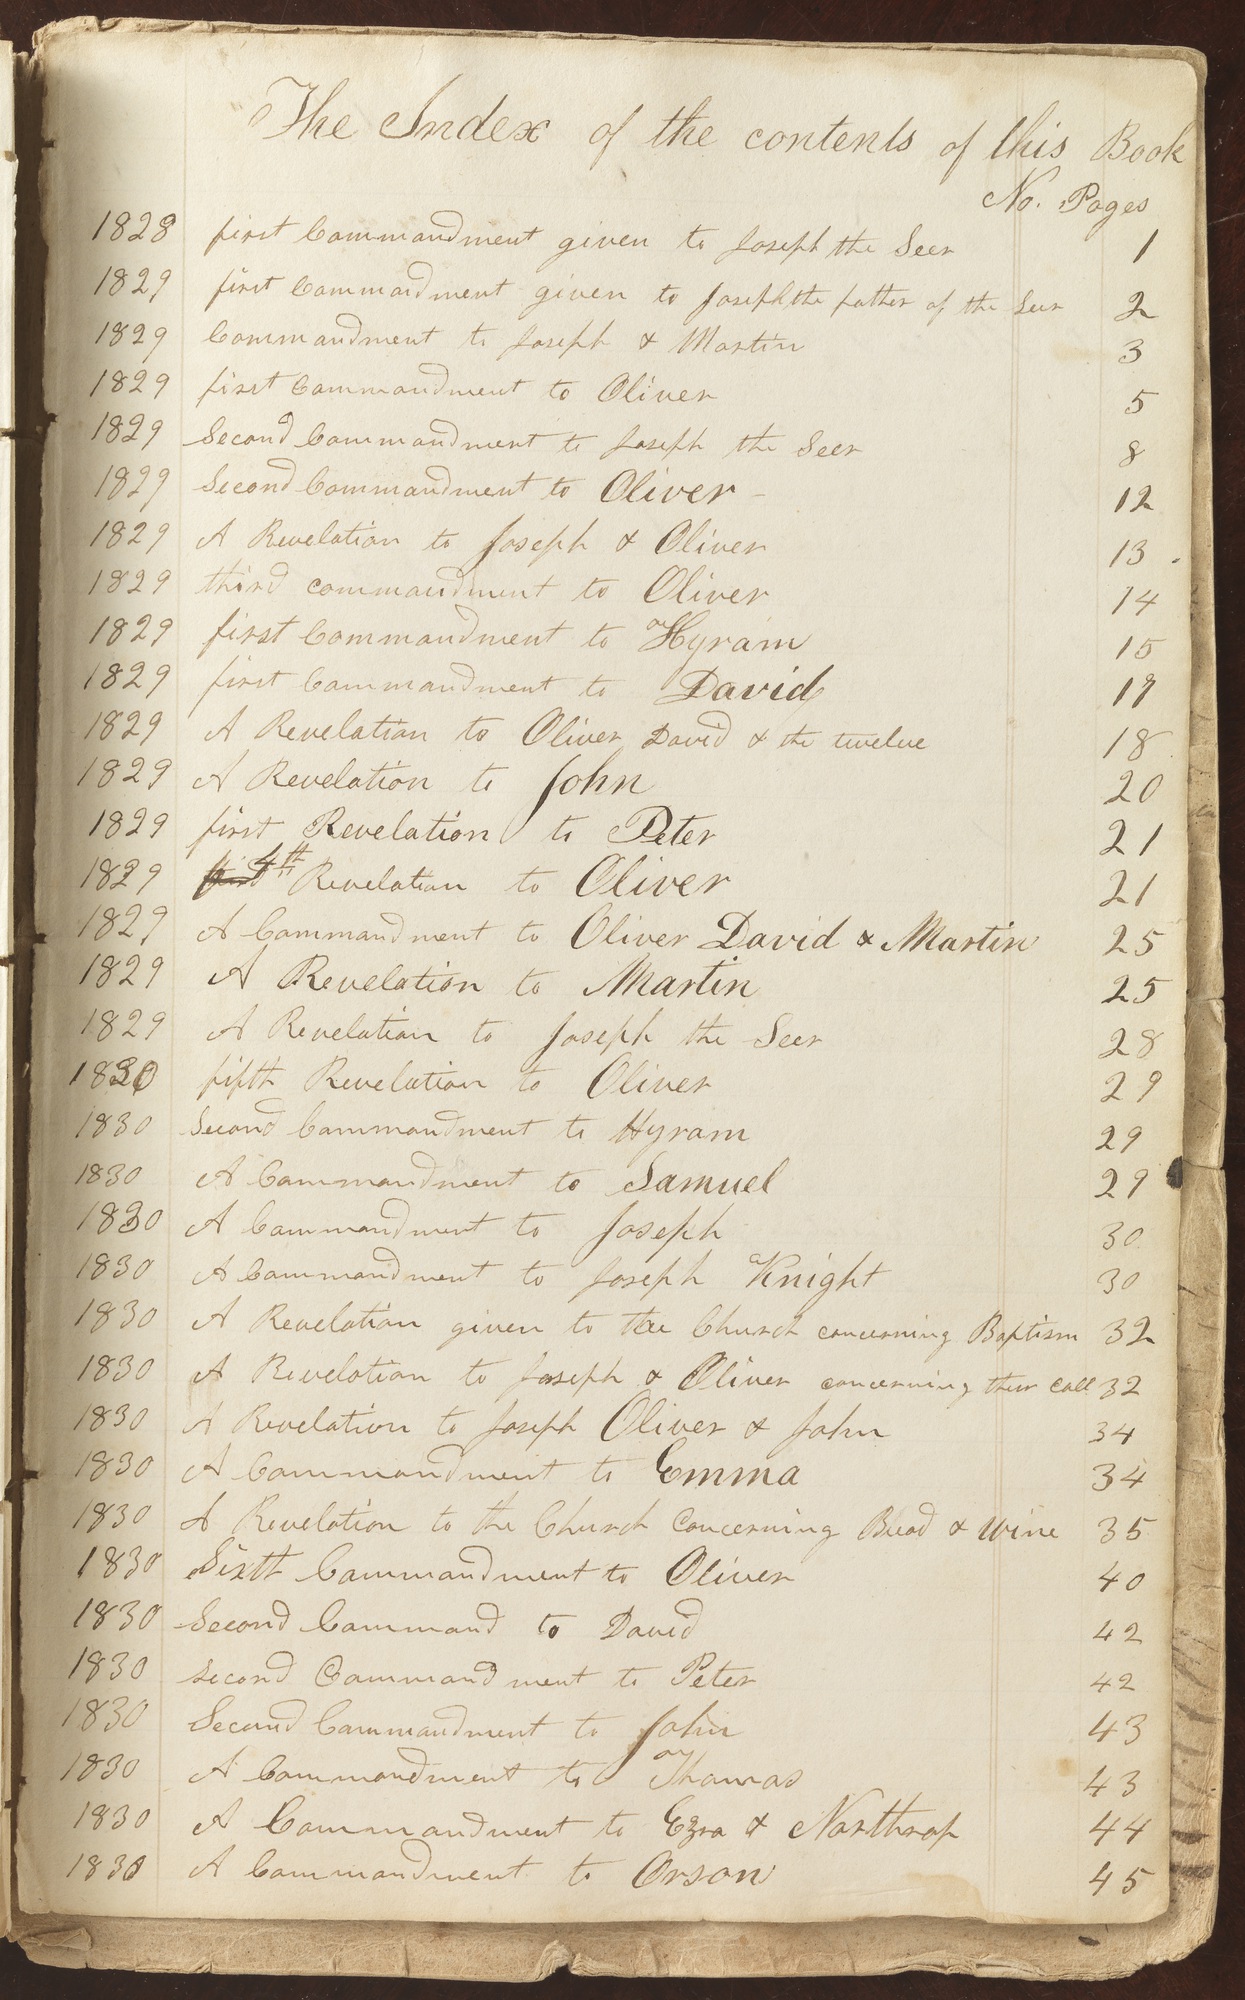 The Index of the contents of this Book
No. Pages
1828 first Commandment given to Joseph the Seer 1
1829 first Commandment given to Joseph the father of the Seer 2
1829 Commandment to Joseph & Martin 3
1829 first Commandment to Oliver 5
1829 Second Commandment to Joseph the Seer 8
1829 Second Commandment to Oliver - 12
1829 A Revelation to Joseph & Oliver 13
1829 third commandment to Oliver 14
1829 first Commandment to Hyram 15
1829 first Commandment to David 17
1829 A Revelation to Oliver David & the twelve 18
1829 A Revelation to John 20
1829 first Revelation to Peter 21
1829 first 4th Revelation to Oliver 21
1829 A Commandment to Oliver David & Martin 25
1829 A Revelation to Martin 25
1829 A Revelation to Joseph the Seer 28
1830 fifth Revelation to Oliver 29
1830 Second Commandment to Hyram 29
1830 A Commandment to Samuel 29
1830 A Commandment to Joseph 30
1830 A Commandment to Joseph Knight 30
1830 A Revelation given to the Church concerning Baptism 32
1830 A Revelation to Joseph & Oliver concerning their call 32
1830 A Revelation to Joseph Oliver & John 34
1830 A Commandment to Emma 34
1830 A Revelation to the Church Concerning Bread & wine 35
1830 Sixth Commandment to Oliver 40
1830 Second Command to David 42
1830 second Commandment to Peter 42
1830 Second Commandment to John 43
1830 A Commandment to Thomas 43
1830 A Commandment to Ezra & Northrop 44
1830 A Commandment to Orson 45